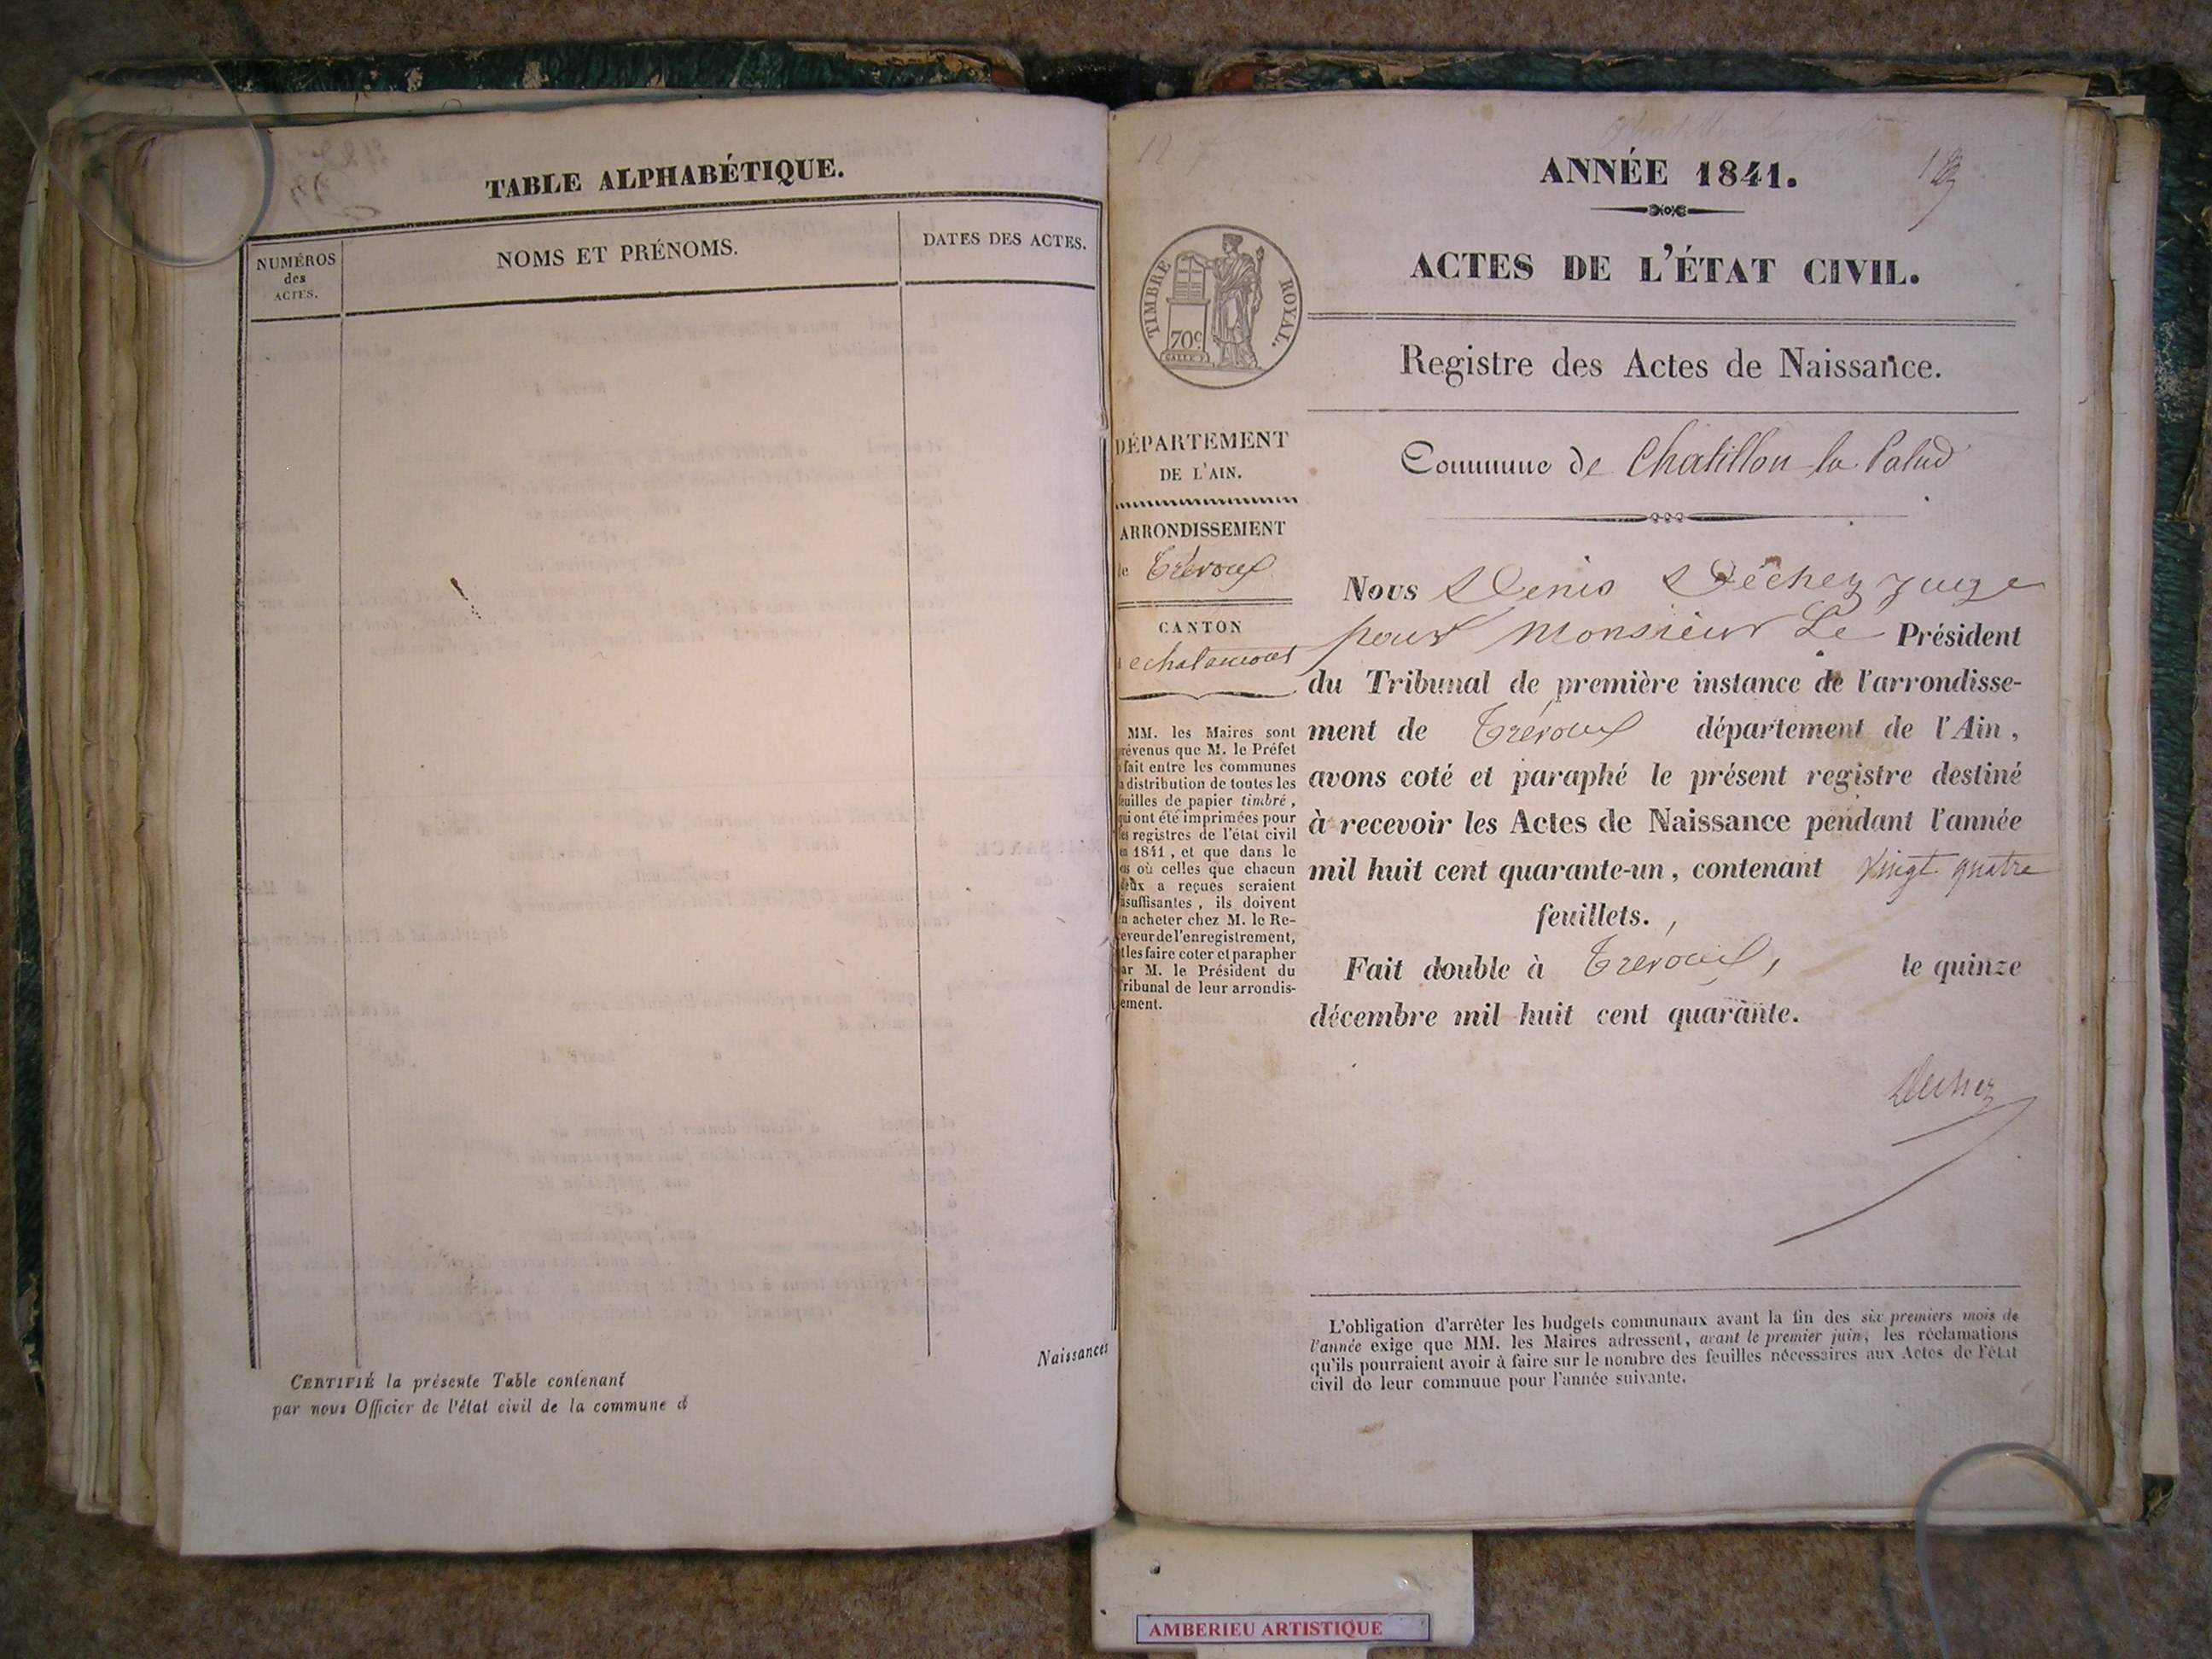 TABLE ALPHABÉTIQUE.
NUMÉROS
des
ACTES.
NOMS ET PRÉNOMS.
DATES DES ACTES.
Naissances
CERTIFIÉ la présente Table contenant
par nous Officier de l'état civil de la commune d
ANNÉE 1841.
ACTES DE L'ÉTAT CIVIL.
TIMBRE ROYAL.
70c
Registre des Actes de Naissance.
DÉPARTEMENT
DE L'AIN.
ARRONDISSEMENT
de Trévoux
CANTON
chalamont
MM. les Maires sont
prévenus que M. le Préfet
a fait entre les communes
la distribution de toutes les
feuilles de papier timbré,
qui ont été imprimées pour
les registres de l'état civil
en 1841, et que dans le
cas où celles que chacun
d'eux a reçues seraient
insuffisantes, ils doivent
en acheter chez M. le Re-
ceveur de l'enregistrement,
et les faire coter et parapher
par M. le Président du
Tribunal de leur arrondis-
sement.
Commune de Chatillon la Palud
Nous Denis Déchez juge
pour Monsieur Le Président
du Tribunal de première instance de l'arrondisse-
ment de Trévoux département de l'Ain,
avons coté et paraphé le présent registre destiné
à recevoir les Actes de Naissance pendant l'année
mil huit cent quarante-un, contenant vingt quatre
feuillets.
Fait double à Trévoux, le quinze
décembre mil huit cent quarante.
Dechez
L'obligation d'arrêter les budgets communaux avant la fin des six premiers mois de
l'année exige que MM. les Maires adressent, avant le premier juin, les réclamations
qu'ils pourraient avoir à faire sur le nombre des feuilles nécessaires aux Actes de l'état
civil de leur commune pour l'année suivante.
AMBERIEU ARTISTIQUE